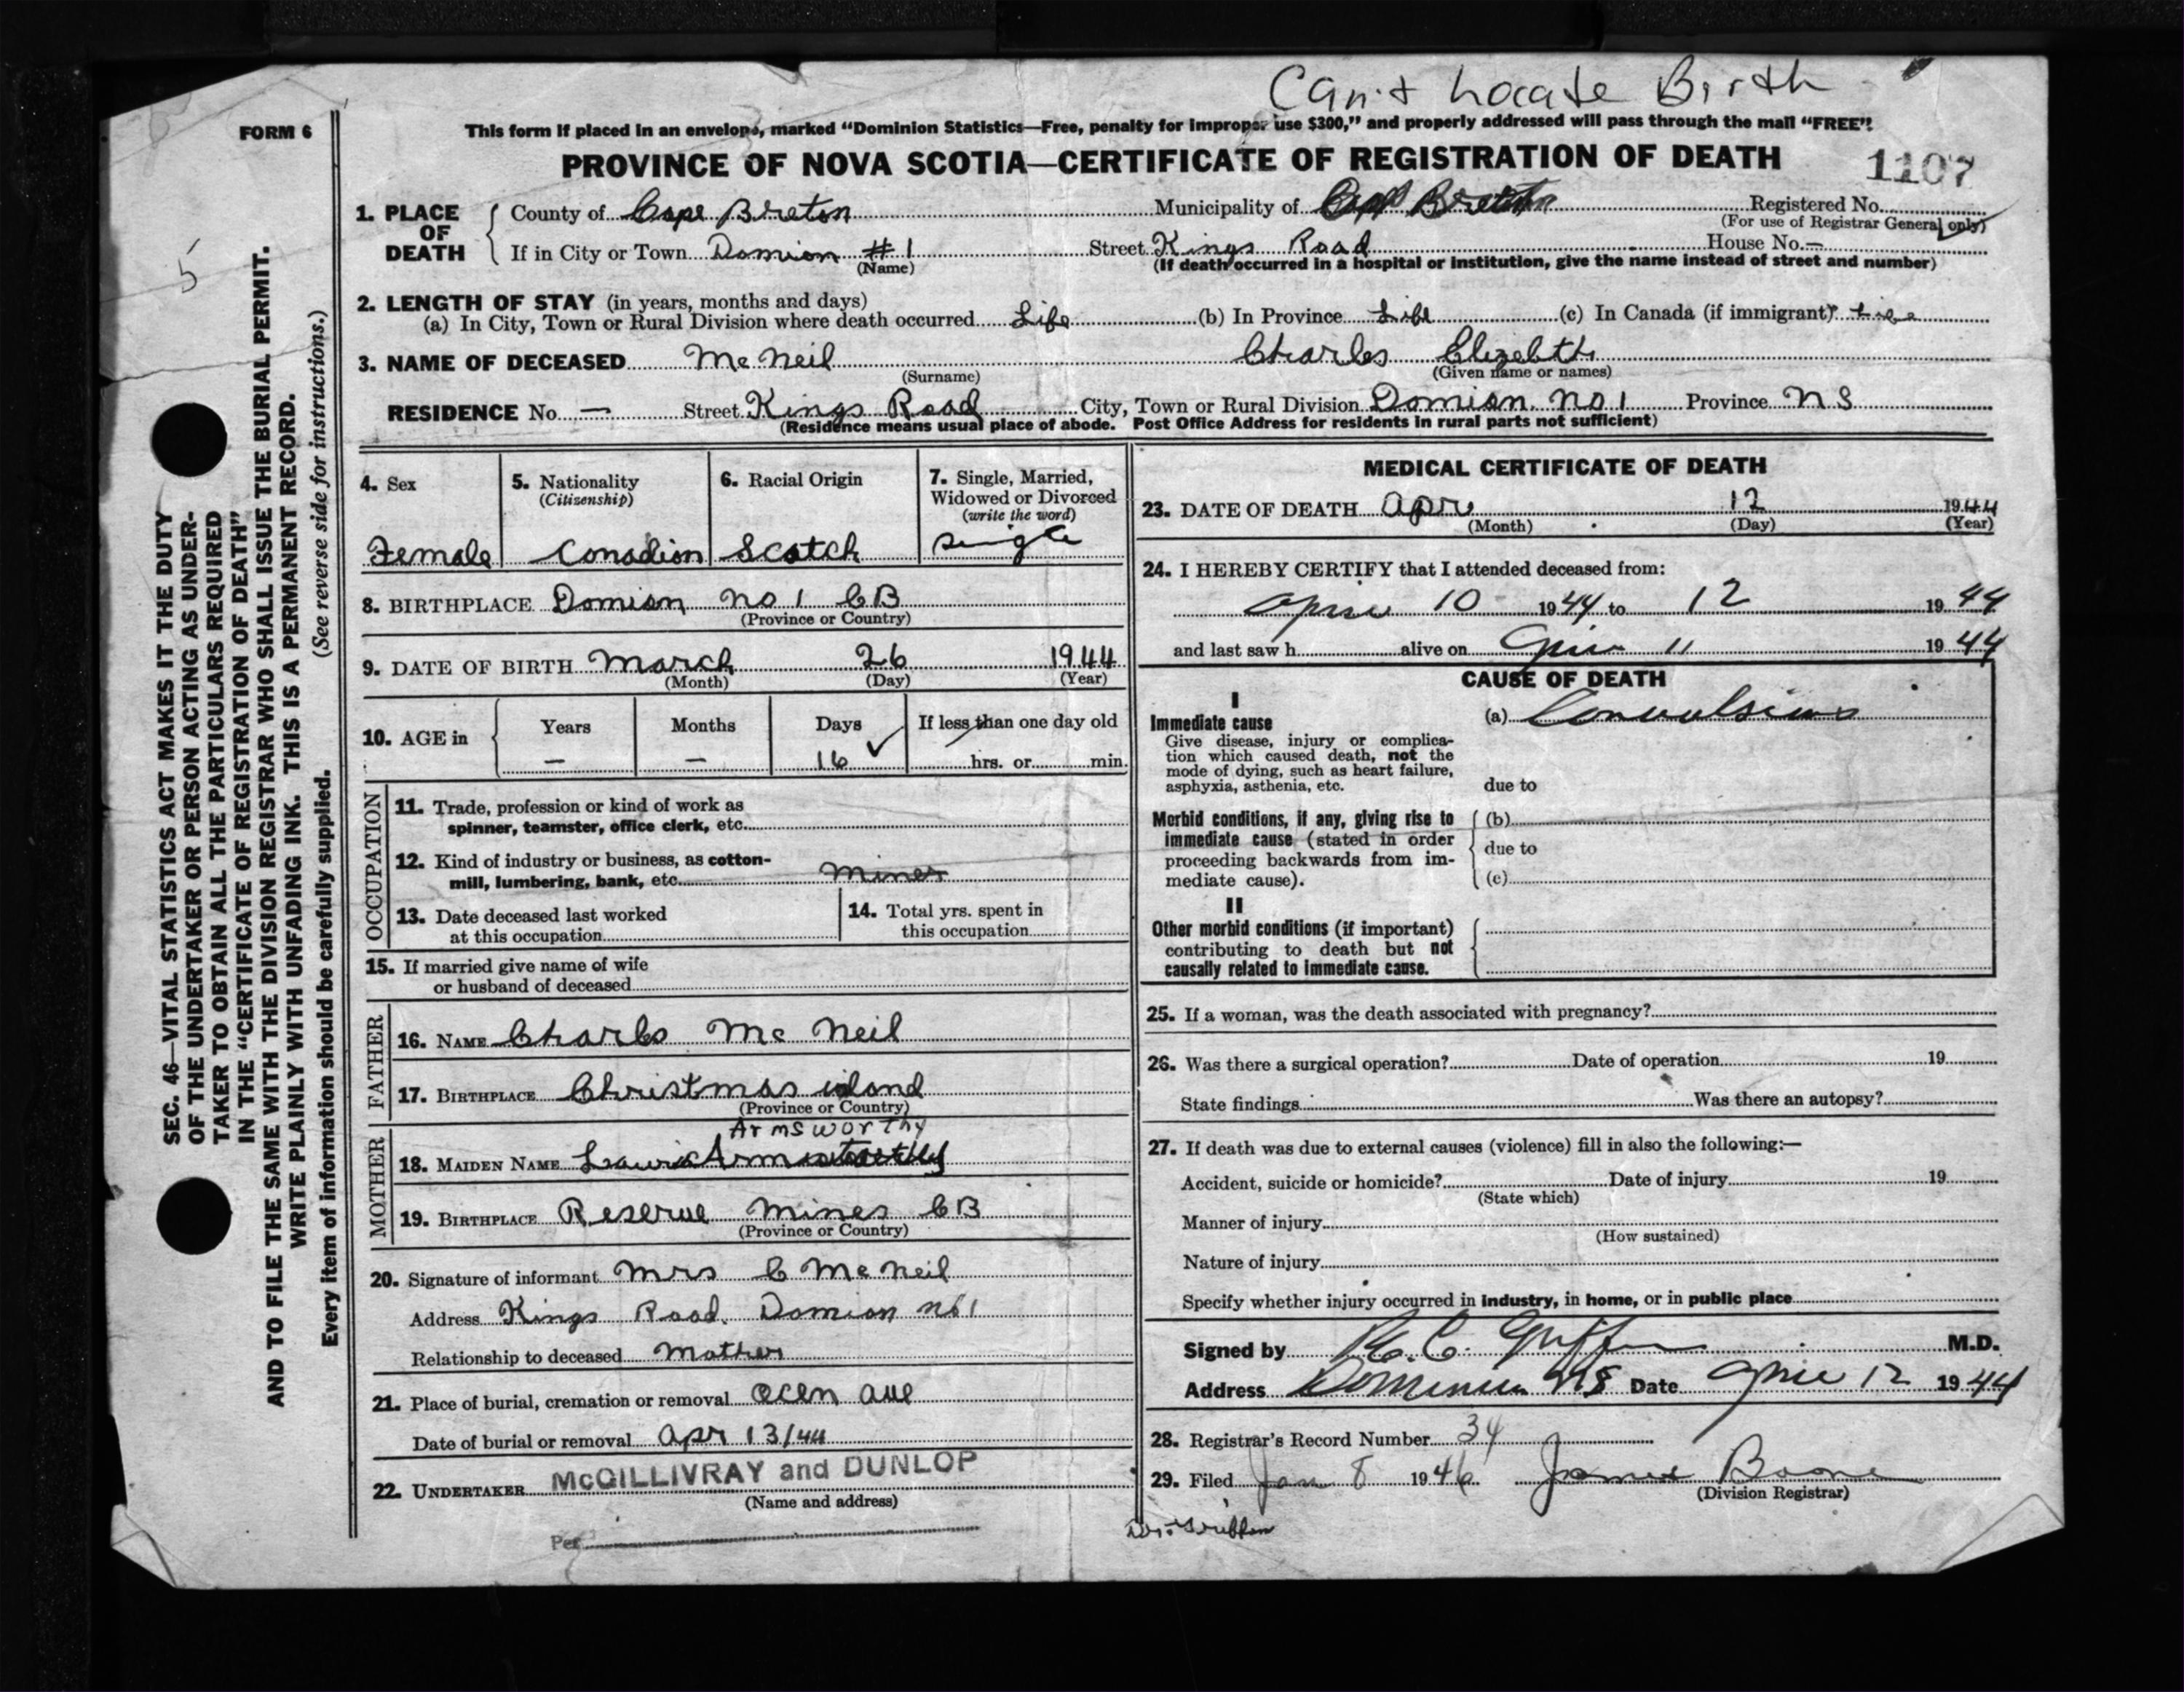 Can't Locate Birth
FORM 6
This form if placed in an envelope, marked "Dominion Statistics—Free, penalty for improper use $300," and properly addressed will pass through the mail "FREE".
PROVINCE OF NOVA SCOTIA—CERTIFICATE OF REGISTRATION OF DEATH
1107
1. PLACE OF DEATH
County of Cape Breton Municipality of Cape Breton Registered No.
(For use of Registrar General only)
If in City or Town Domion #1 Street Kings Road House No. —
(Name) (If death occurred in a hospital or institution, give the name instead of street and number)
2. LENGTH OF STAY (in years, months and days)
(a) In City, Town or Rural Division where death occurred Life (b) In Province Life (c) In Canada (if immigrant) Life
3. NAME OF DECEASED McNeil Charles Elizebth
(Surname) (Given name or names)
RESIDENCE No. — Street Kings Road City, Town or Rural Division Domion no 1 Province N S
(Residence means usual place of abode. Post Office Address for residents in rural parts not sufficient)
4. Sex
Female
5. Nationality
(Citizenship)
Conadion
6. Racial Origin
Scotch
7. Single, Married,
Widowed or Divorced
(write the word)
Single
8. BIRTHPLACE Domion no 1 CB
(Province or Country)
9. DATE OF BIRTH March 26 1944
(Month) (Day) (Year)
10. AGE in
Years Months Days If less than one day old
— — 16 ✓ hrs. or min.
OCCUPATION
11. Trade, profession or kind of work as
spinner, teamster, office clerk, etc.
12. Kind of industry or business, as cotton-
mill, lumbering, bank, etc. miner
13. Date deceased last worked
at this occupation
14. Total yrs. spent in
this occupation
15. If married give name of wife
or husband of deceased
FATHER
16. NAME Charles Mc Neil
17. BIRTHPLACE Christmas island
(Province or Country)
MOTHER
Armsworthy
18. MAIDEN NAME
19. BIRTHPLACE Reserve mines CB
(Province or Country)
20. Signature of informant Mrs C McNeil
Address Kings Road. Domion no 1
Relationship to deceased Mother
21. Place of burial, cremation or removal Ocen ave
Date of burial or removal Apr 13/44
22. UNDERTAKER McGILLIVRAY and DUNLOP
(Name and address)
Per
MEDICAL CERTIFICATE OF DEATH
23. DATE OF DEATH Apri 12 1944
(Month) (Day) (Year)
24. I HEREBY CERTIFY that I attended deceased from:
April 10 1944 to 12 1944
and last saw h alive on April 11 1944
CAUSE OF DEATH
I
Immediate cause
Give disease, injury or complica-
tion which caused death, not the
mode of dying, such as heart failure,
asphyxia, asthenia, etc.
(a) Convulsions
due to
Morbid conditions, if any, giving rise to
immediate cause (stated in order
proceeding backwards from im-
mediate cause).
(b)
due to
(c)
II
Other morbid conditions (if important)
contributing to death but not
causally related to immediate cause.
25. If a woman, was the death associated with pregnancy?
26. Was there a surgical operation? Date of operation 19
State findings Was there an autopsy?
27. If death was due to external causes (violence) fill in also the following:—
Accident, suicide or homicide? Date of injury 19
(State which)
Manner of injury
(How sustained)
Nature of injury
Specify whether injury occurred in industry, in home, or in public place
Signed by M.D.
Address Dominion NS Date April 12 1944
28. Registrar's Record Number 34
29. Filed Jan 8 1946 James Boone
(Division Registrar)
5
SEC. 46—VITAL STATISTICS ACT MAKES IT THE DUTY
OF THE UNDERTAKER OR PERSON ACTING AS UNDER-
TAKER TO OBTAIN ALL THE PARTICULARS REQUIRED
IN THE "CERTIFICATE OF REGISTRATION OF DEATH"
AND TO FILE THE SAME WITH THE DIVISION REGISTRAR WHO SHALL ISSUE THE BURIAL PERMIT.
WRITE PLAINLY WITH UNFADING INK. THIS IS A PERMANENT RECORD.
(See reverse side for instructions.)
Every item of information should be carefully supplied.